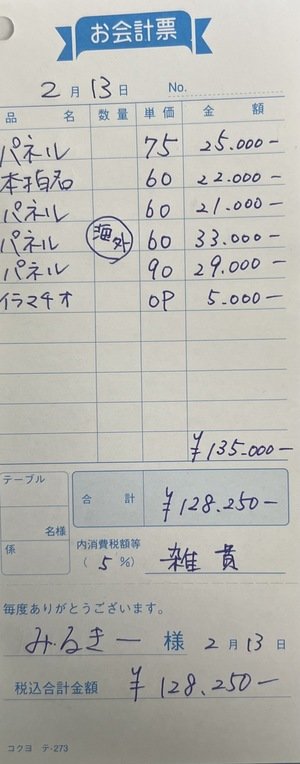 お会計票
2月13日 No.
品名 数量 単価 金額
パネル 75 25.000-
本指名 60 22.000-
パネル 60 21.000-
パネル 海外 60 33.000-
パネル 90 29.000-
イラマチオ OP 5.000-
¥135.000-
テーブル
名様
係
合計 ¥128.250-
内消費税額等
(5%) 雑貴
毎度ありがとうございます。
みるきー 様 2月13日
税込合計金額 ¥128.250-
コクヨ テ-273